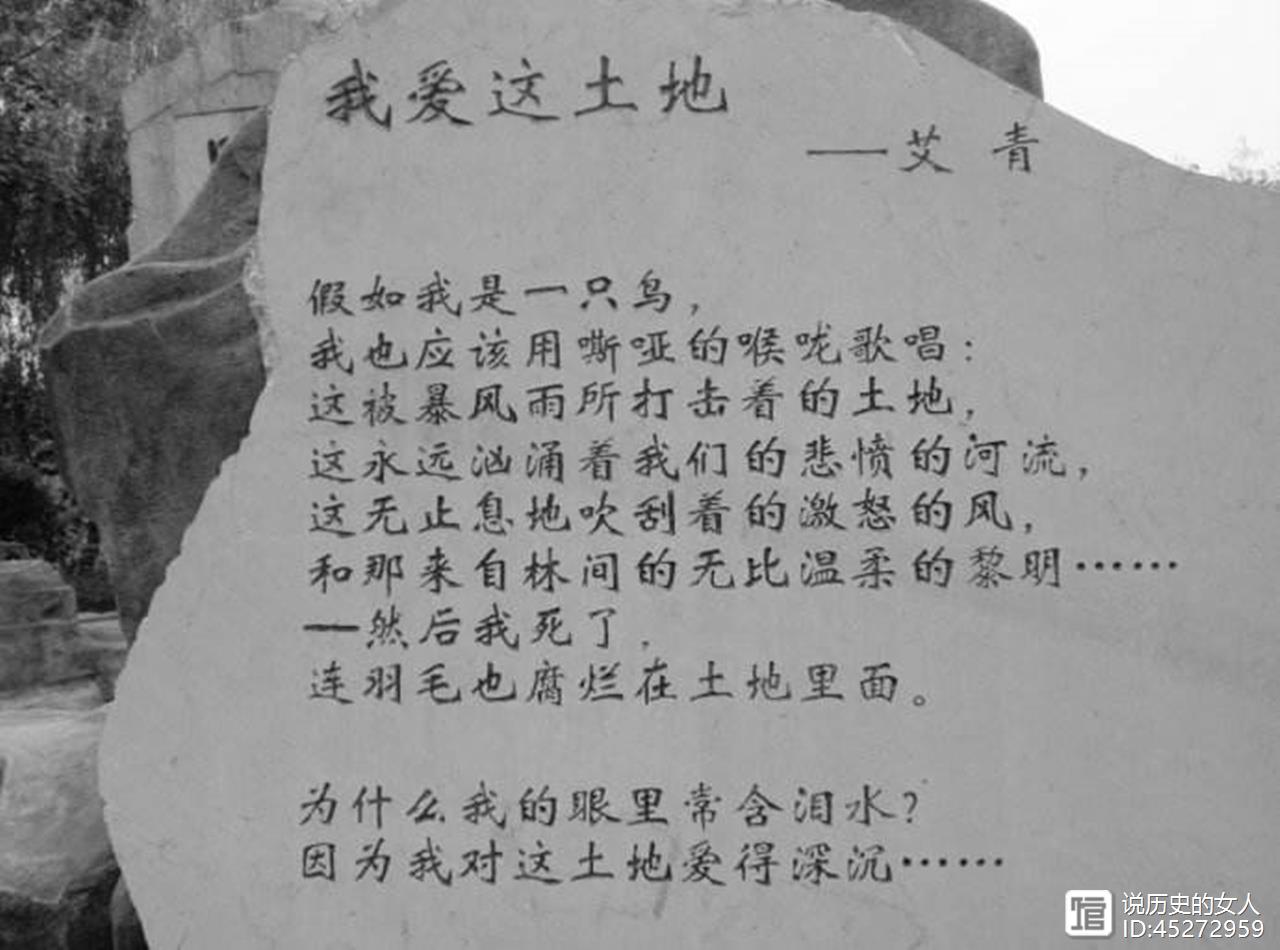 我爱这土地
——艾青
假如我是一只鸟，
我也应该用嘶哑的喉咙歌唱：
这被暴风雨所打击着的土地，
这永远汹涌着我们的悲愤的河流，
这无止息地吹刮着的激怒的风，
和那来自林间的无比温柔的黎明……
——然后我死了，
连羽毛也腐烂在土地里面。
为什么我的眼里常含泪水？
因为我对这土地爱得深沉……
说历史的女人
ID:45272959